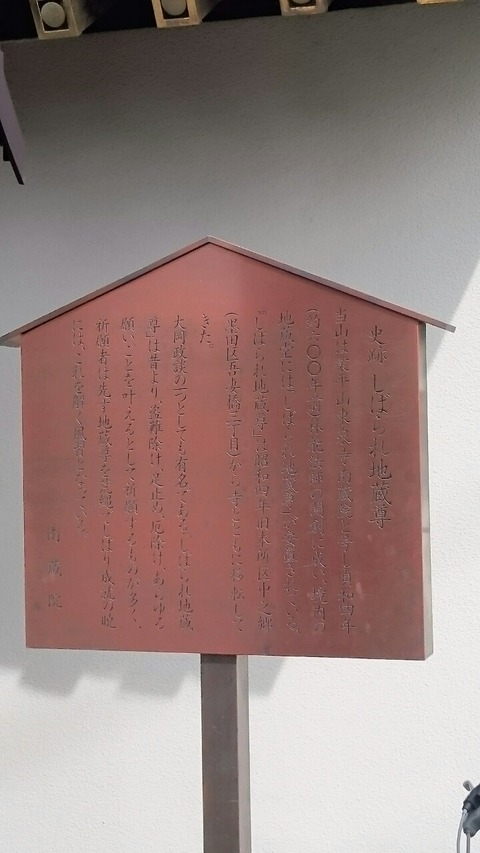 史跡 しばられ地蔵尊
当山は業平山東泉寺南蔵院と号し貞和四年
(約六〇〇年前)林能法師の開基に依り、境内の
地蔵堂には「しばられ地蔵尊」が安置されている。
「しばられ地蔵尊」は昭和四年旧本所区中之郷
(墨田区吾妻橋三丁目)から寺とともに移転して
きた。
大岡政談の一つとしても有名であるしばられ地蔵
尊は昔より、盗難除け、足止め、厄除け、あらゆる
願いごとを叶えるとして祈願するものが多く、
祈願者は先ず地蔵尊を荒縄でしばり成就の暁
には、これを解く風習となっている。
南蔵院